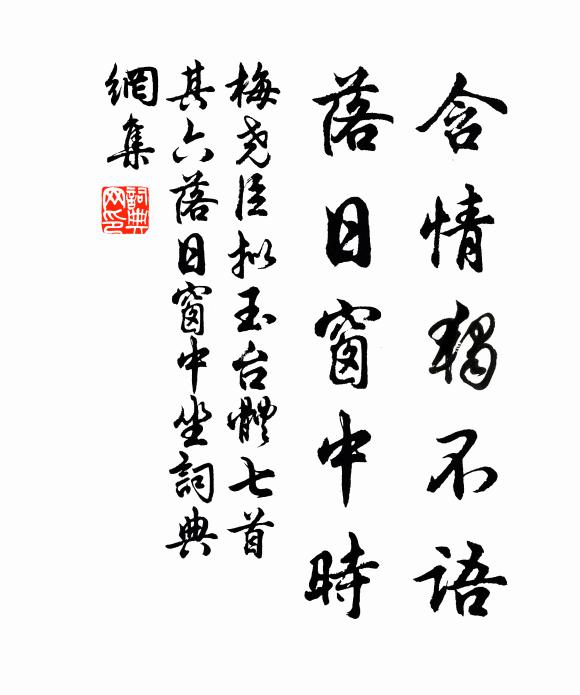 含情獨不語
落日窗中時
梅堯臣擬玉台體七首
其六落日窗中坐詞典
網集
詞典
网印